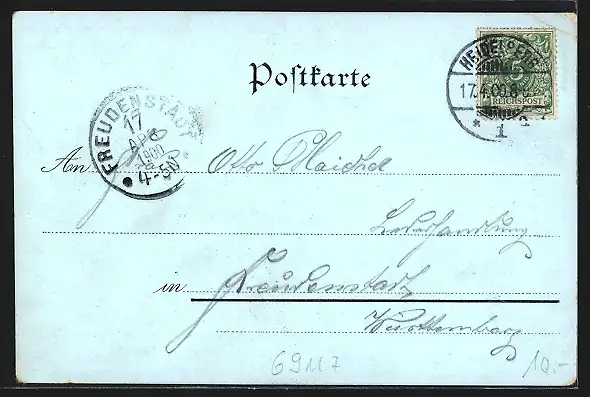 Postkarte
HEIDELBERG
17.4.00.8-
1
5
REICHSPOST
FREUDENSTADT
17
APR
1900
4-5N
An Otto
Lederhandlung
in Freudenstadt
Württemberg
69117
10.-